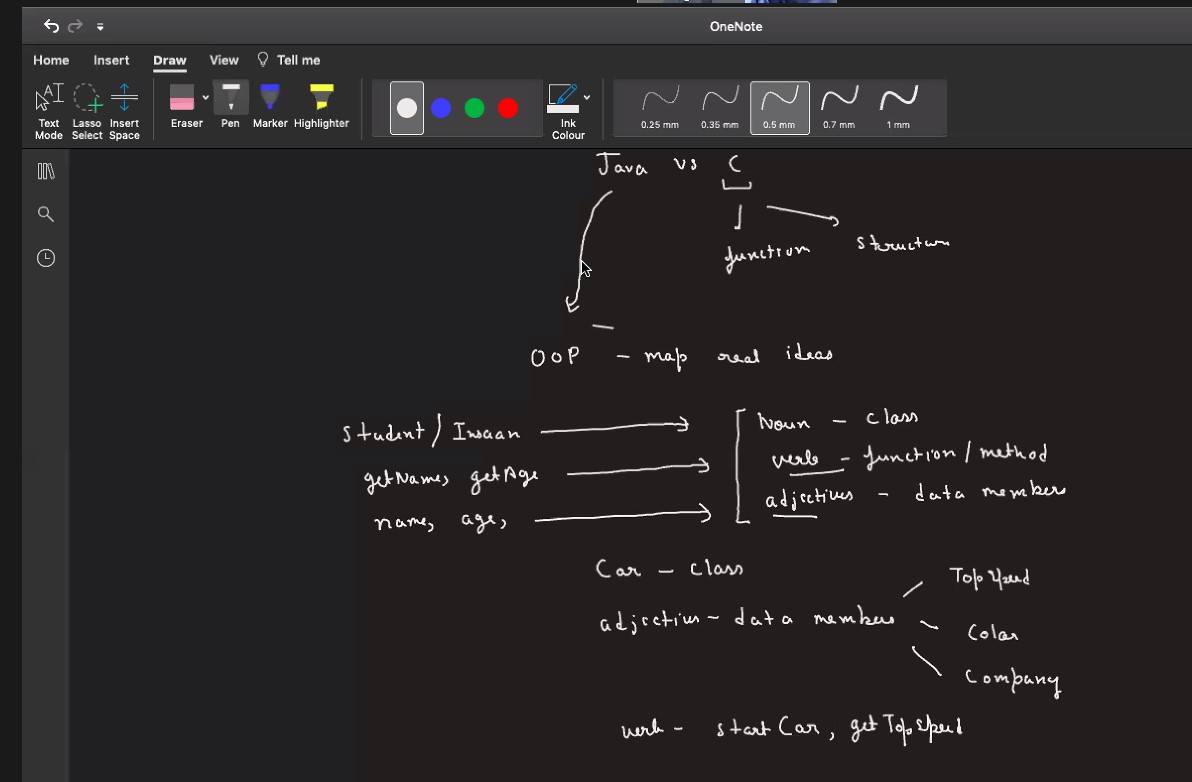 OneNote
Home Insert Draw View Tell me
Text Mode Lasso Select Insert Space Eraser Pen Marker Highlighter Ink Colour 0.25 mm 0.35 mm 0.5 mm 0.7 mm 1 mm
Java vs C
function structure
OOP - map real ideas
Student / Insaan Noun - class
verb - function / method
getName, getAge
adjectives - data members
name, age,
Car - class
Top Speed
adjectives - data members
Color
Company
verb - start Car, get Top Speed